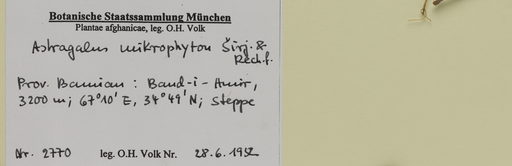 Botanische Staatssammlung München
Plantae afghanicae, leg. O.H. Volk
Astragalus mikrophyton Širj. &
Rech.f.
Prov. Bamian : Band-i-Amir,
3200 m; 67°10' E, 34°49' N; Steppe
Nr. 2770 leg. O.H. Volk Nr. 28.6.1952